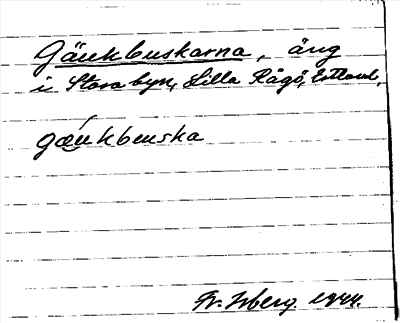 Gäukbuskarna, äng
i Stora byn, Lilla Rågö, Estland,
gæukbuska
Fr. Isberg 1944.